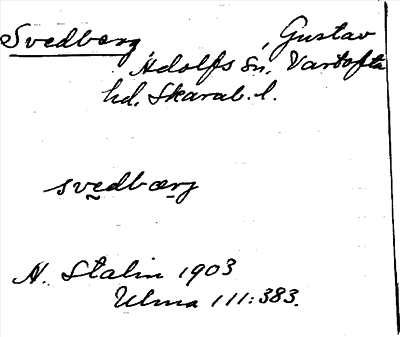 Svedbærg, Gustav
Adolfs sn, Vartofta
hd. Skarab. l.
svedbærg
N. Stalin 1903
Ulma 111:383.